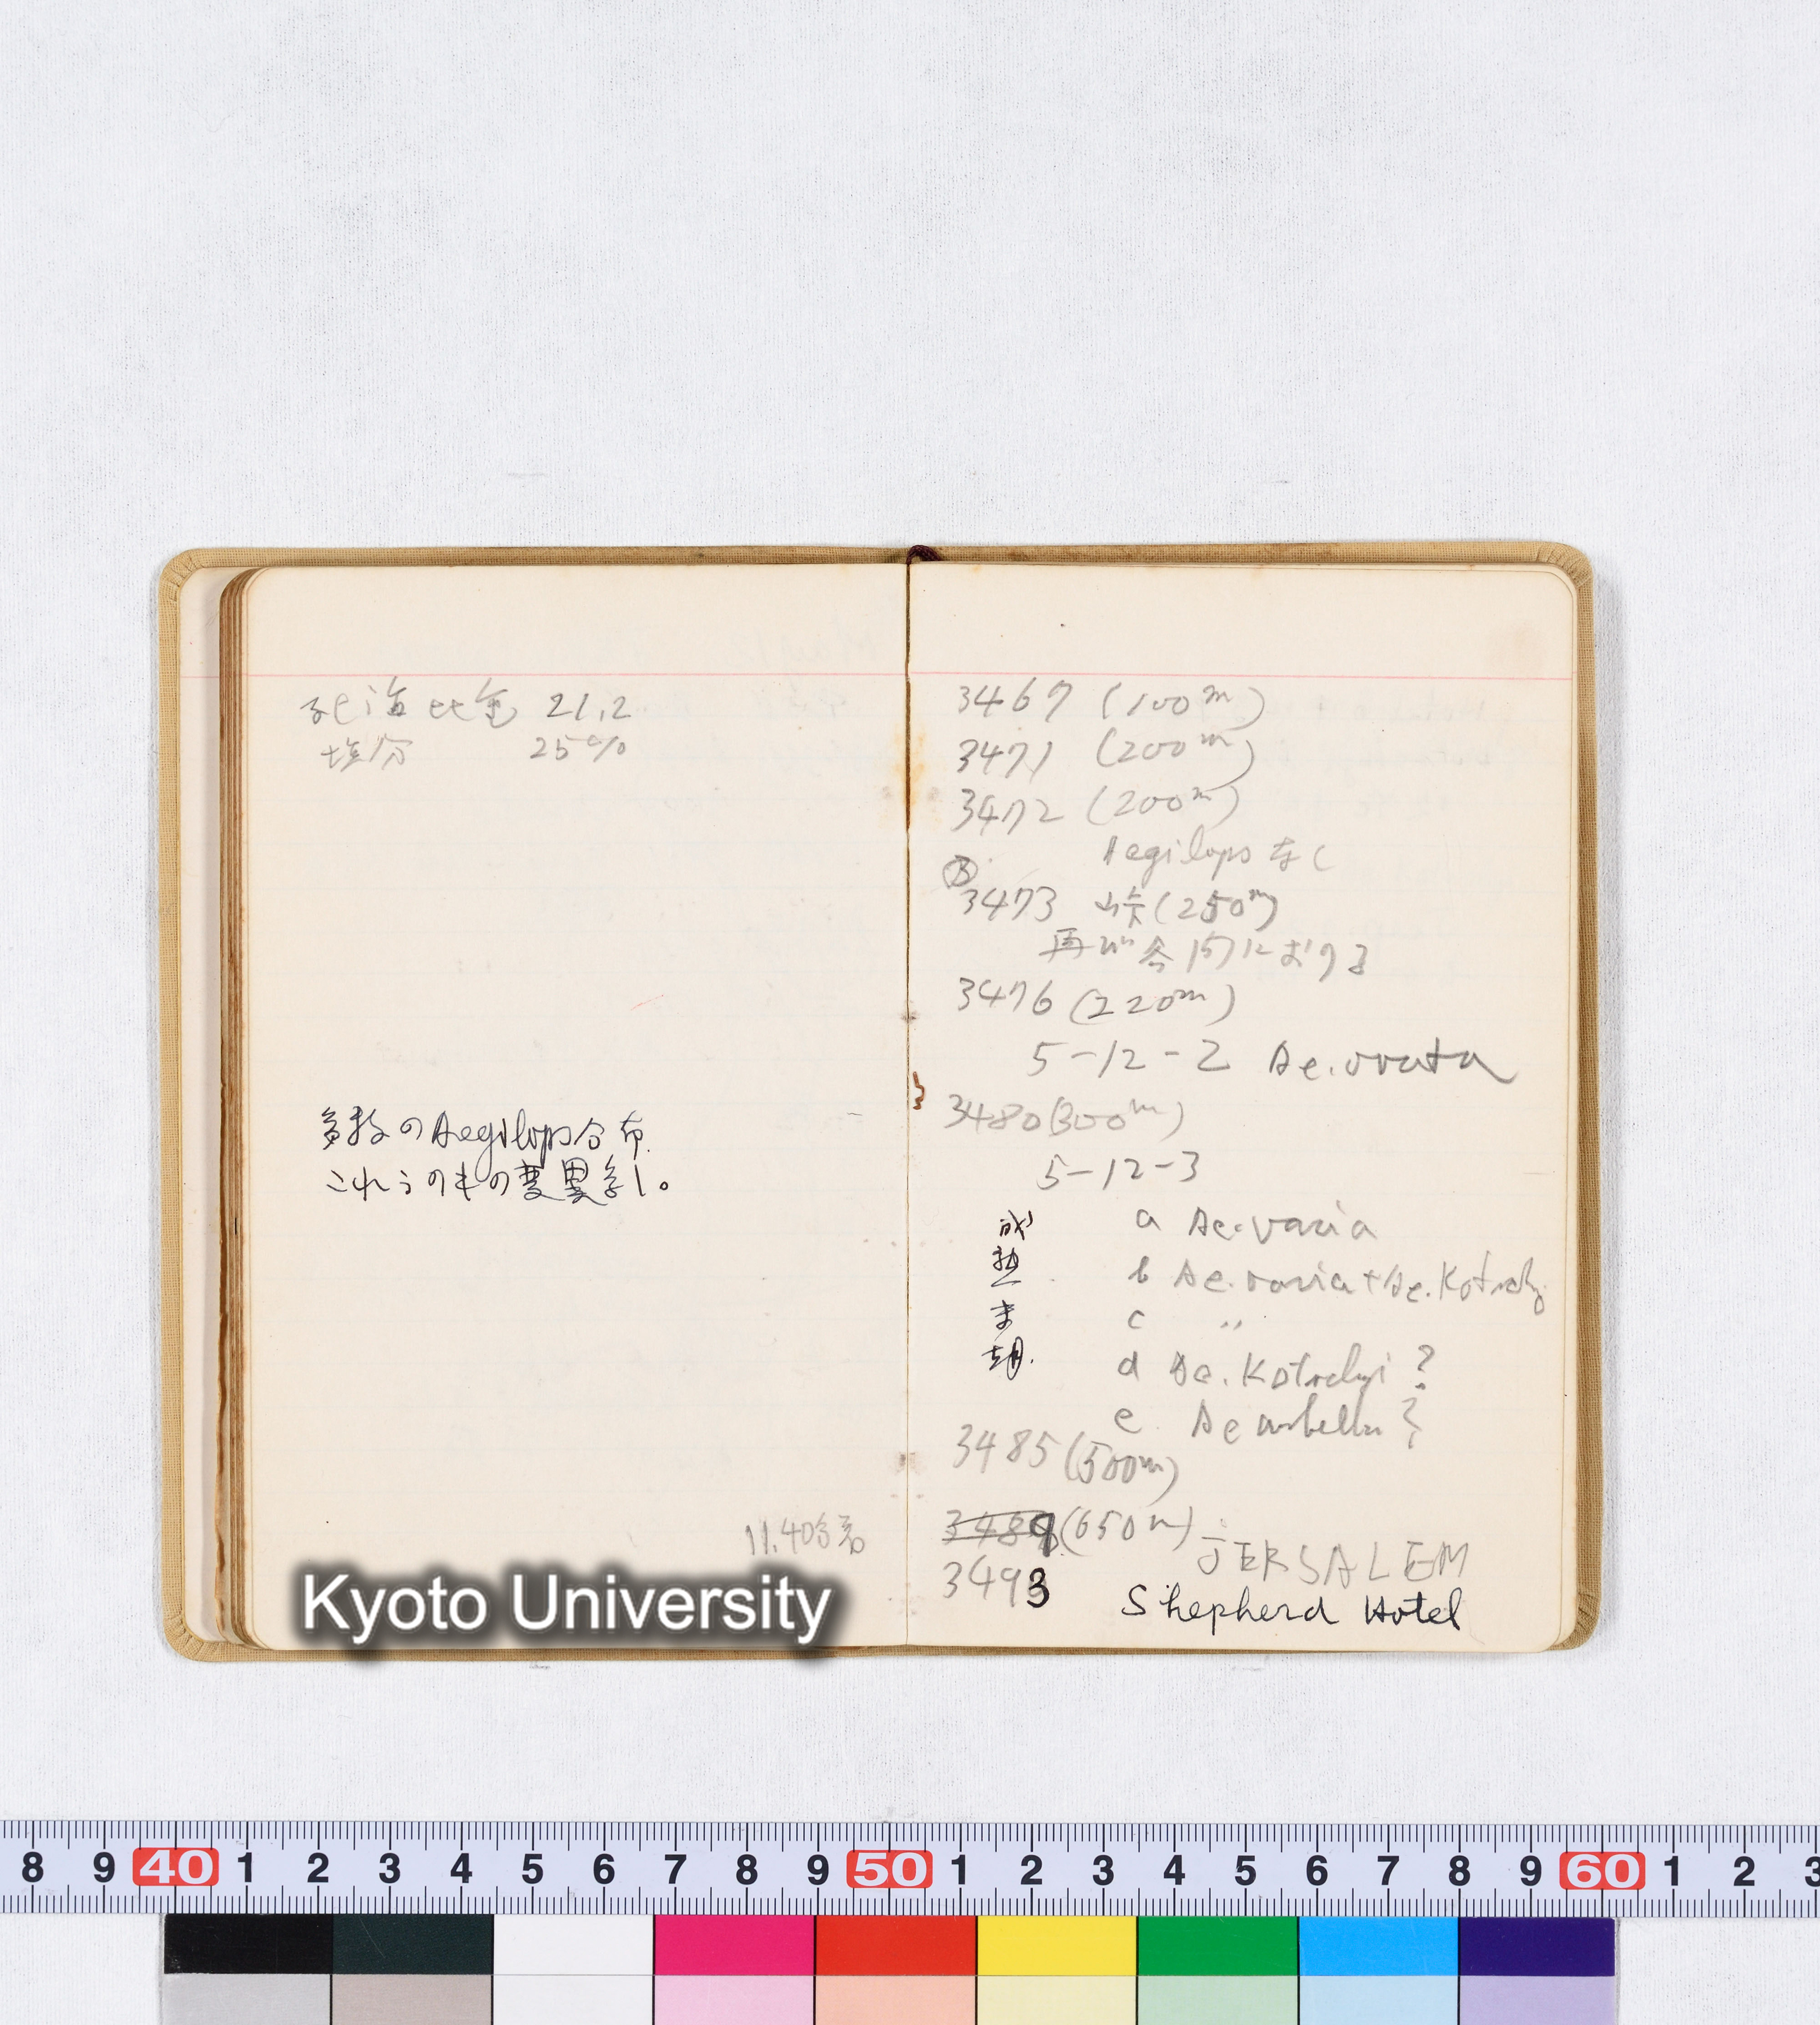 死海比重 21.2
塩分 25%
多数のAegilops分布.
これらのもの変異多し。
11.40分着
3467 (100m)
3471 (200m)
3472 (200m)
Aegilops なし
3473 峠(250m)
再び谷間におりる
3476 (220m)
5-12-2 Ae.ovata
3480 (300m)
5-12-3
成熟末期.
a Ae.varia
b Ae.varia+Ae.Kotschy
c 〃
d Ae.Kotschyi ?
e Ae umbellu ?
3485 (500m)
3489 (650m)
JERSALEM
3493
Shepherd Hotel
Kyoto University
8 9 40 1 2 3 4 5 6 7 8 9 50 1 2 3 4 5 6 7 8 9 60 1 2 3